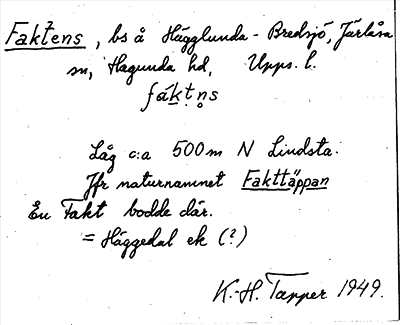 Faktens, bs å Hägglunda - Bredsjö, Järlåsa
sn, Hagunda hd, Upps. l.
fáktns
Låg c:a 500 m N Lindsta.
Jfr naturnamnet Fakttäppan
En Fakt bodde där.
= Häggedal ek (?)
K.-H. Tapper 1949.